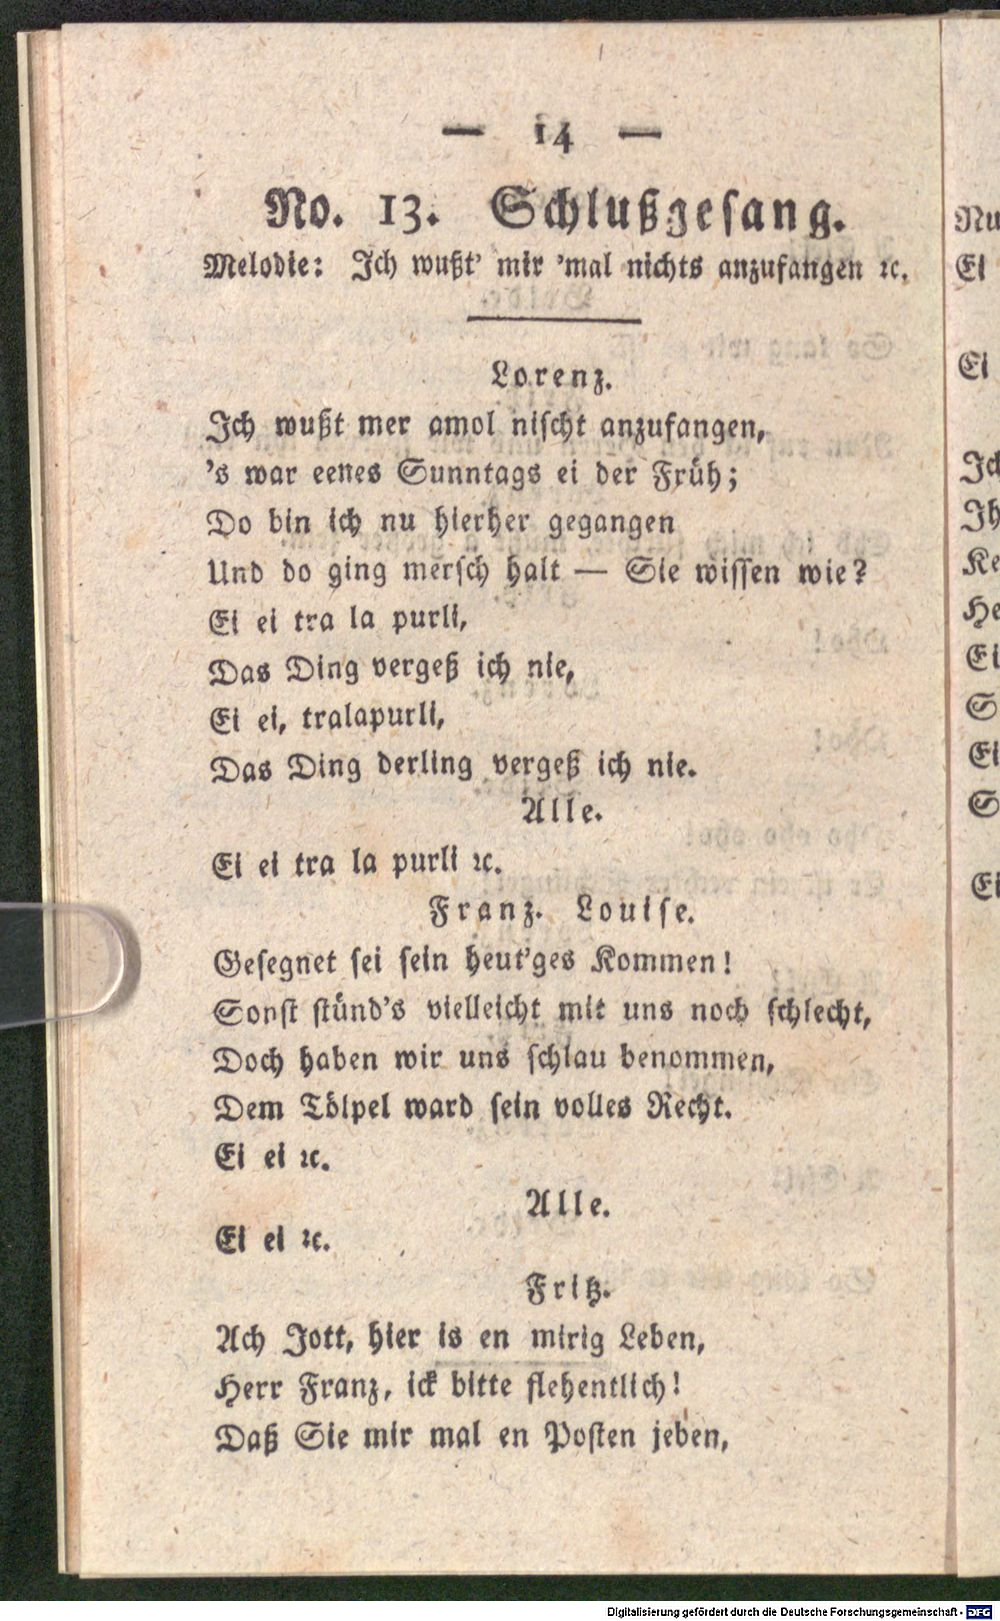 — 14 —
No. 13. Schlußgesang.
Melodie: Ich wußt' mir 'mal nichts anzufangen ꝛc.
Lorenz.
Ich wußt mer amol nischt anzufangen,
's war eenes Sunntags ei der Früh;
Do bin ich nu hierher gegangen
Und do ging mersch halt — Sie wissen wie?
Ei ei tra la purli,
Das Ding vergeß ich nie,
Ei ei, tralapurli,
Das Ding derling vergeß ich nie.
Alle.
Ei ei tra la purli ꝛc.
Franz. Louise.
Gesegnet sei sein heut'ges Kommen!
Sonst stünd's vielleicht mit uns noch schlecht,
Doch haben wir uns schlau benommen,
Dem Tölpel ward sein volles Recht.
Ei ei ꝛc.
Alle.
Ei ei ꝛc.
Fritz.
Ach Jott, hier is en mirig Leben,
Herr Franz, ick bitte flehentlich!
Daß Sie mir mal en Posten jeben,
Nu
Ei
Ei
Ich
Ih
Ke
He
Ei
S
Ei
S
Ei
Digitalisierung gefördert durch die Deutsche Forschungsgemeinschaft - DFG